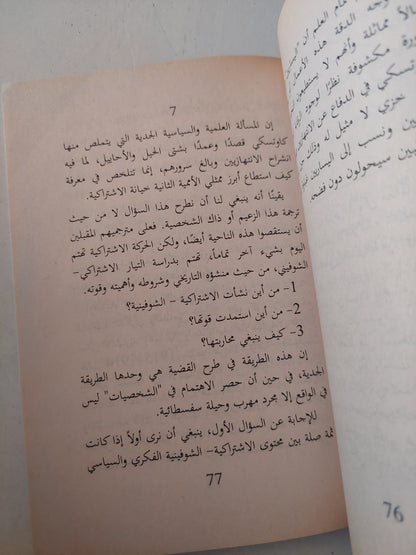 7
إن المسألة العلمية والسياسية الجدية التي يتملص منها
كاوتسكي قصدًا وعمدًا بشتى الحيل والأحابيل، لما فيه
انشراح الانتهازيين وبالغ سرورهم، إنما تتلخص في معرفة
كيف استطاع أبرز ممثلي الأممية الثانية خيانة الاشتراكية.
يقينًا أنه ينبغي لنا أن نطرح هذا السؤال لا من حيث
ترجمة هذا الزعيم أو ذاك الشخصية. فعلى مترجميهم المقبلين
أن يستقصوا هذه الناحية أيضًا، ولكن الحركة الاشتراكية تهتم
اليوم بشيء آخر تماماً، تهتم بدراسة التيار الاشتراكي-
الشوفيني، من حيث منشؤه التاريخي وشروطه وأهميته وقوته.
1- من أين نشأت الاشتراكية – الشوفينية؟
2- من أين استمدت قوتها؟
3- كيف ينبغي محاربتها؟
إن هذه الطريقة في طرح القضية هي وحدها الطريقة
الجدية، في حين أن حصر الاهتمام في "الشخصيات" ليس
في الواقع إلا مجرد مهرب وحيلة سفسطائية.
للإجابة عن السؤال الأول، ينبغي أن نرى أولاً إذا كانت
ثمة صلة بين محتوى الاشتراكية- الشوفينية الفكري والسياسي
77
العلم أن
وجه الدقة هذه
مماثلة وأنهم لا يستطيعون
مكشوفة نظرًا لوجود
في الدفاع عن
خزي لا مثيل له
ونسب إلى اليساريين
سيحولون دون فضح
76